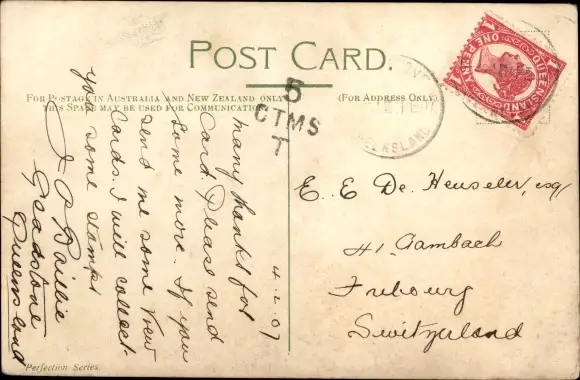 POST CARD.
FOR POSTAGE IN AUSTRALIA AND NEW ZEALAND ONLY
THIS SPACE MAY BE USED FOR COMMUNICATION
(FOR ADDRESS ONLY.)
5
CTMS
T
QUEENSLAND
ONE PENNY
1
1
EENSLAND
4.2.07
many thanks for
Card. Please send
Some more. If you
send me some View
Cards. I will collect
you some stamps
J A Baillie
Gladstone
Queensland
E. E De. Heuseler, esq,
41. Gambach
Fribourg
Switzerland
Perfection Series.